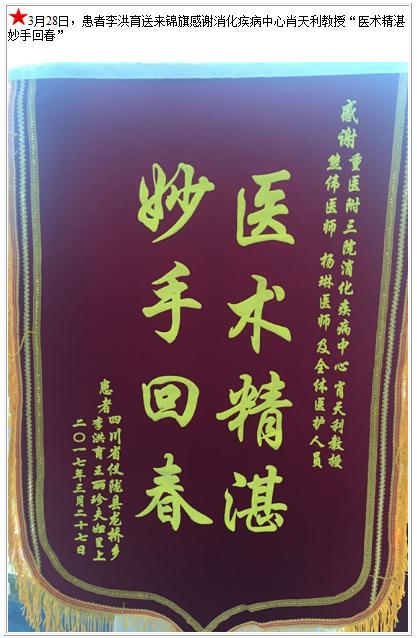 3月28日，患者李洪育送来锦旗感谢消化疾病中心肖天利教授“医术精湛
妙手回春”
感谢重医附三院消化疾病中心肖天利教授
熊伟医师 杨琳医师及全体医护人员
医术精湛
妙手回春
患者四川省仪陇县龙桥乡
李洪育王丽珍夫妇呈上
二〇一七年三月二十七日